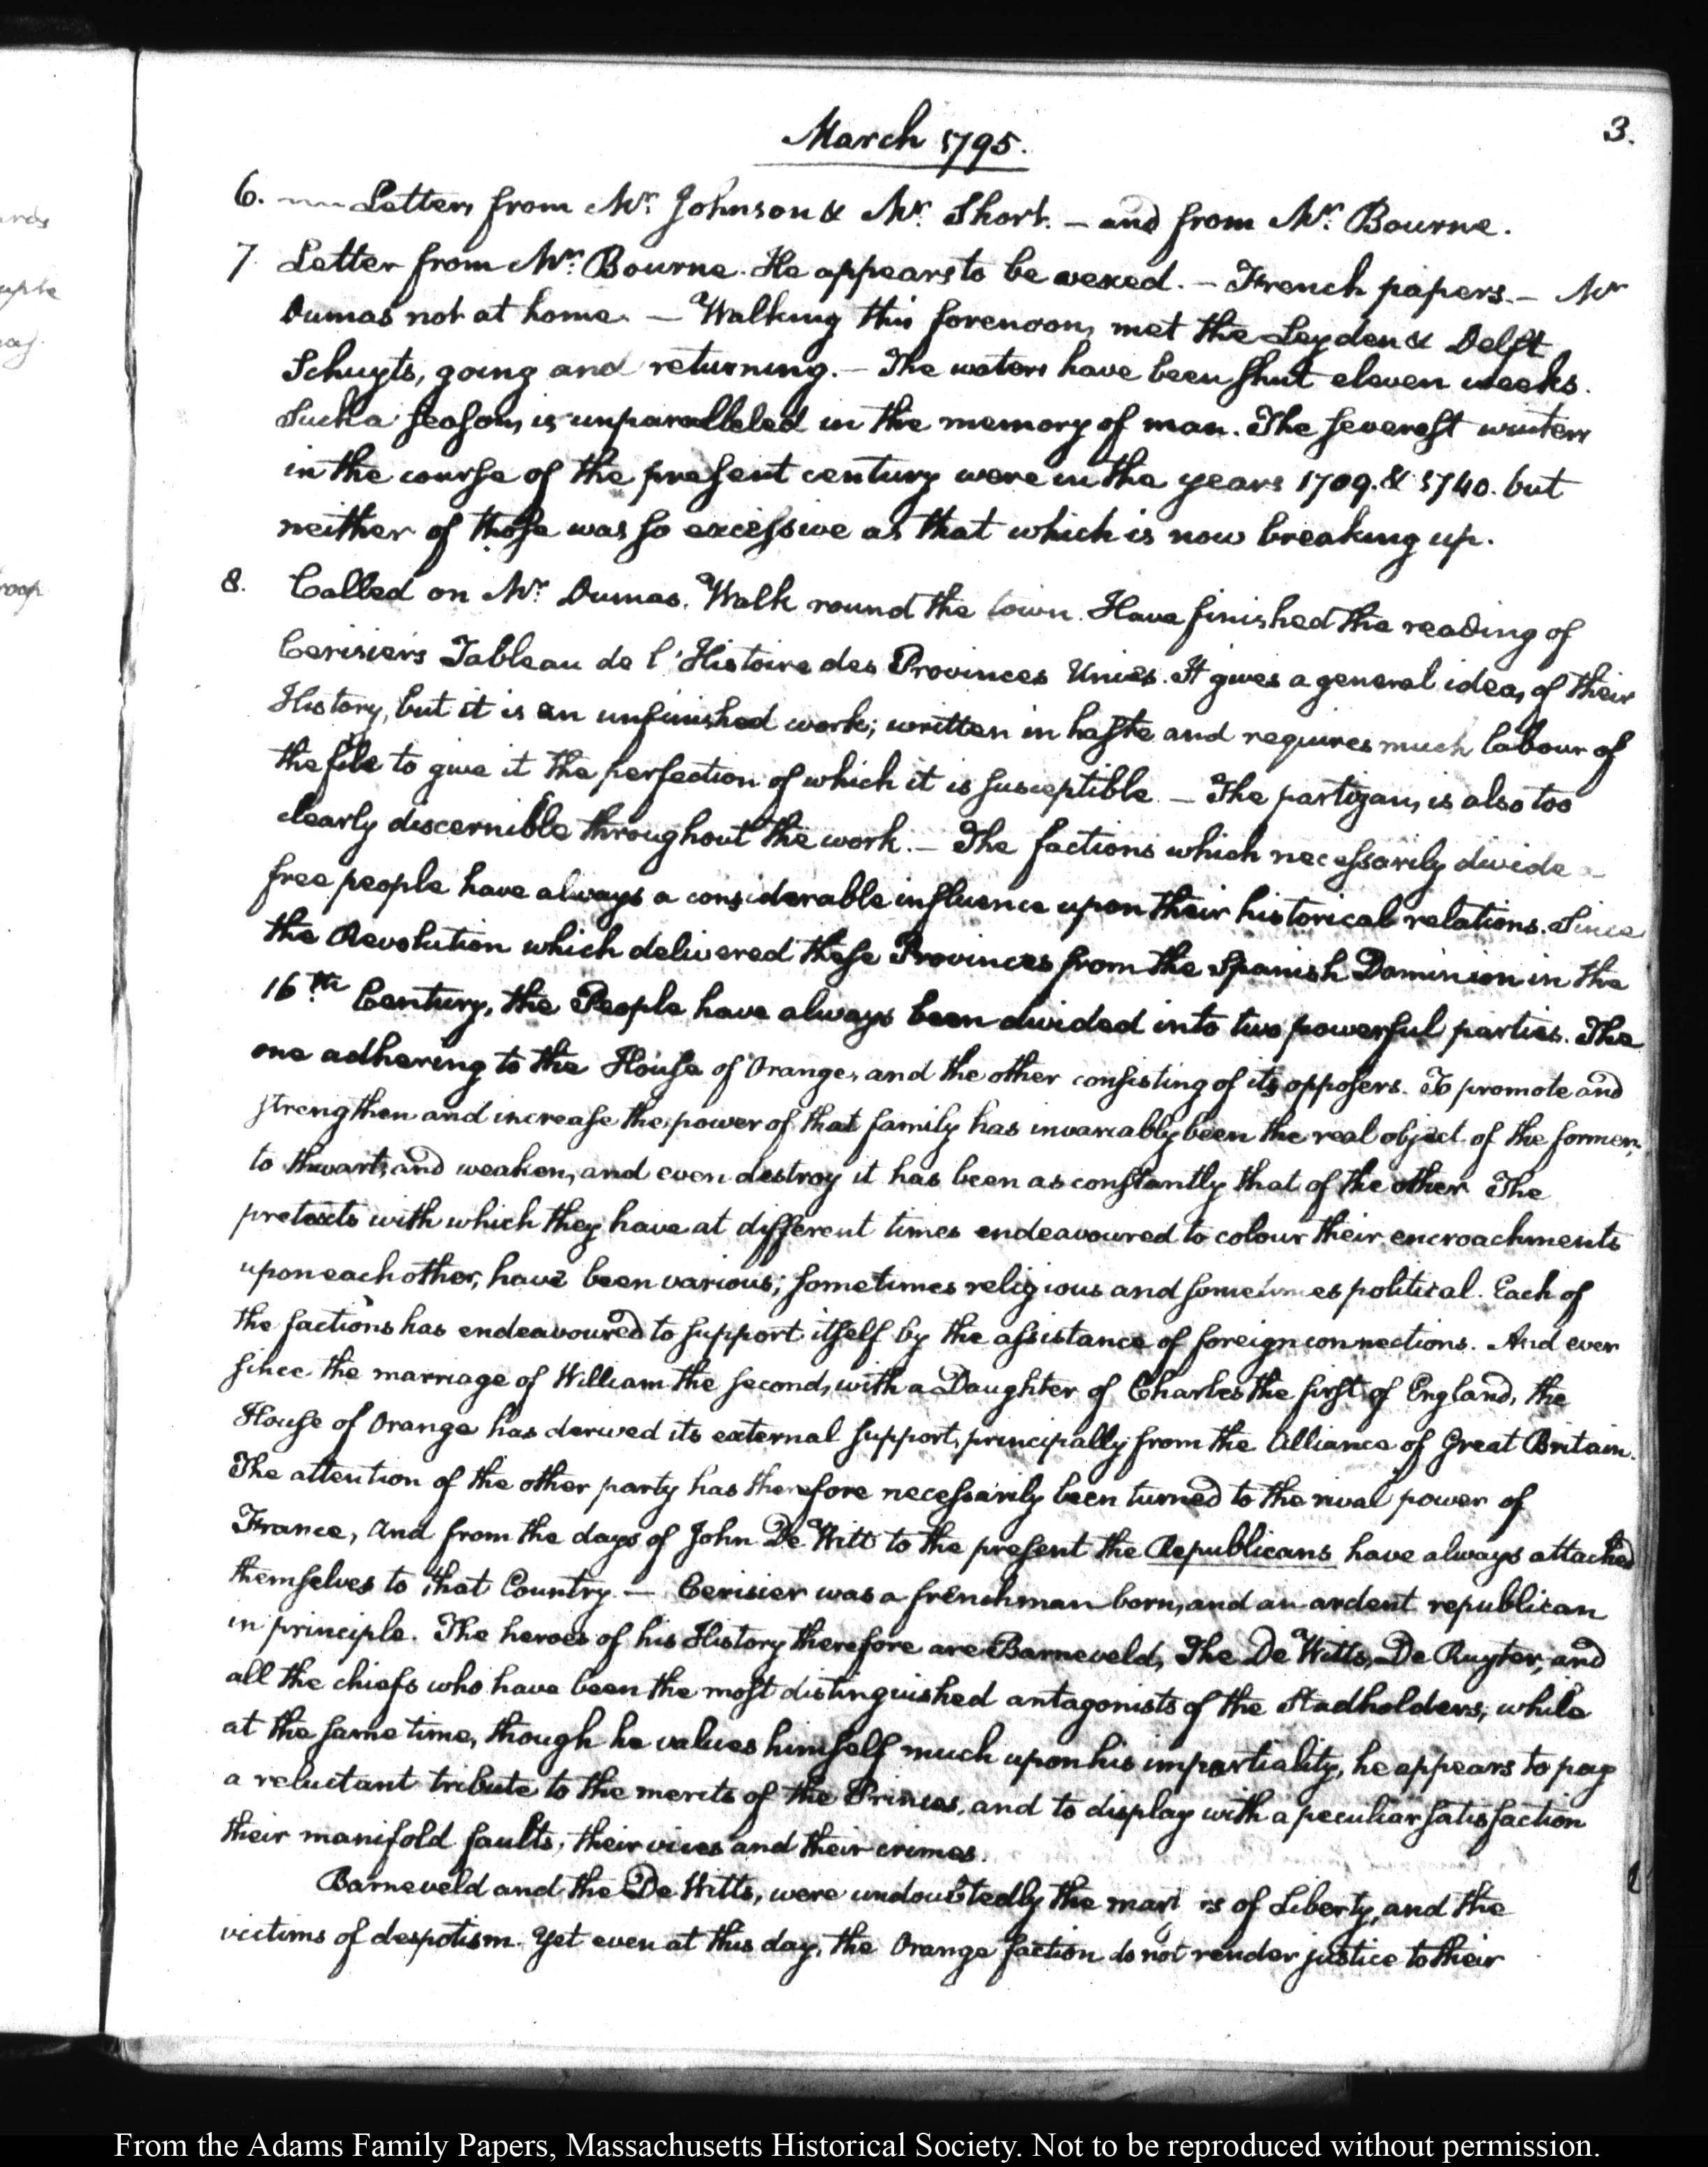 March 1795.
3.
6. Letters from Mr. Johnson & Mr. Short. — and from Mr. Bourne.
7. Letter from Mr. Bourne. He appears to be vexed. — French papers. — Mr
Dumas not at home. — Walking this forenoon, met the Leyden & Delft
Schuyts, going and returning. — The waters have been shut eleven weeks.
Such a season, is unparalleled in the memory of man. The severest winters
in the course of the present century were in the years 1709. & 1740. but
neither of those was so excessive as that which is now breaking up.
8. Called on Mr. Dumas. Walk round the town. Have finished the reading of
Cerisier's Tableau de l'Histoire des Provinces Unies. It gives a general idea, of their
History, but it is an unfinished work; written in haste and requires much labour of
the file to give it the perfection of which it is susceptible. — The partizan, is also too
clearly discernible throughout the work. — The factions which necessarily divide a
free people have always a considerable influence upon their historical relations. Since
the Revolution which delivered these Provinces from the Spanish Dominion in the
16th. Century, the People have always been divided into two powerful parties. The
one adhering to the House of Orange, and the other consisting of its opposers. To promote and
strengthen and increase the power of that family has invariably been the real object of the former;
to thwart, and weaken, and even destroy it has been as constantly that of the other. The
pretexts with which they have at different times endeavoured to colour their encroachments
upon each other, have been various; sometimes religious and sometimes political. Each of
the factions has endeavoured to support itself by the assistance of foreign connections. And ever
since the marriage of William the second, with a Daughter of Charles the first of England, the
House of Orange has derived its external support, principally from the Alliance of Great Britain.
The attention of the other party has therefore necessarily been turned to the rival power of
France, and from the days of John De Witt to the present the Republicans have always attached
themselves to that Country. — Cerisier was a frenchman born, and an ardent republican
in principle. The heroes of his History therefore are Barneveld, The De Witts, De Ruyter, and
all the chiefs who have been the most distinguished antagonists of the Stadholders; while
at the same time, though he values himself much upon his impartiality, he appears to pay
a reluctant tribute to the merits of the Princes, and to display with a peculiar satisfaction
their manifold faults, their vices and their crimes.
Barneveld and the De Witts, were undoubtedly the mart rs of Liberty, and the
victims of despotism. Yet even at this day, the Orange faction do not render justice to their
From the Adams Family Papers, Massachusetts Historical Society. Not to be reproduced without permission.